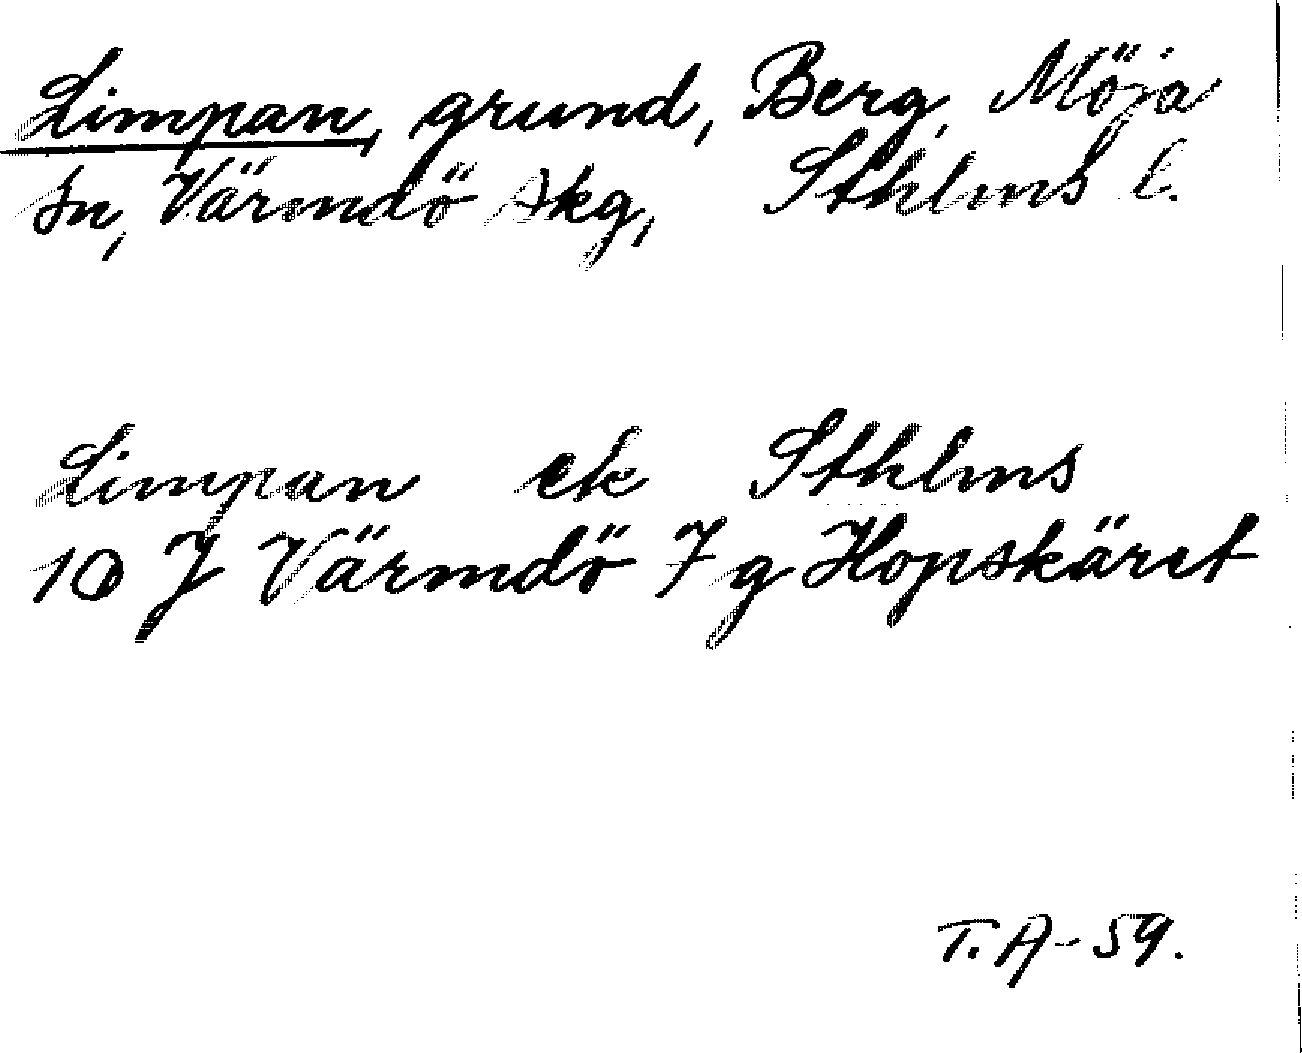 Limpan, grund, Berg, Möja
sn, Värmdö skg, Sthlms l.
Limpan ek Sthlms
10 J Värmdö 7 g Hopskäret
T. A-59.